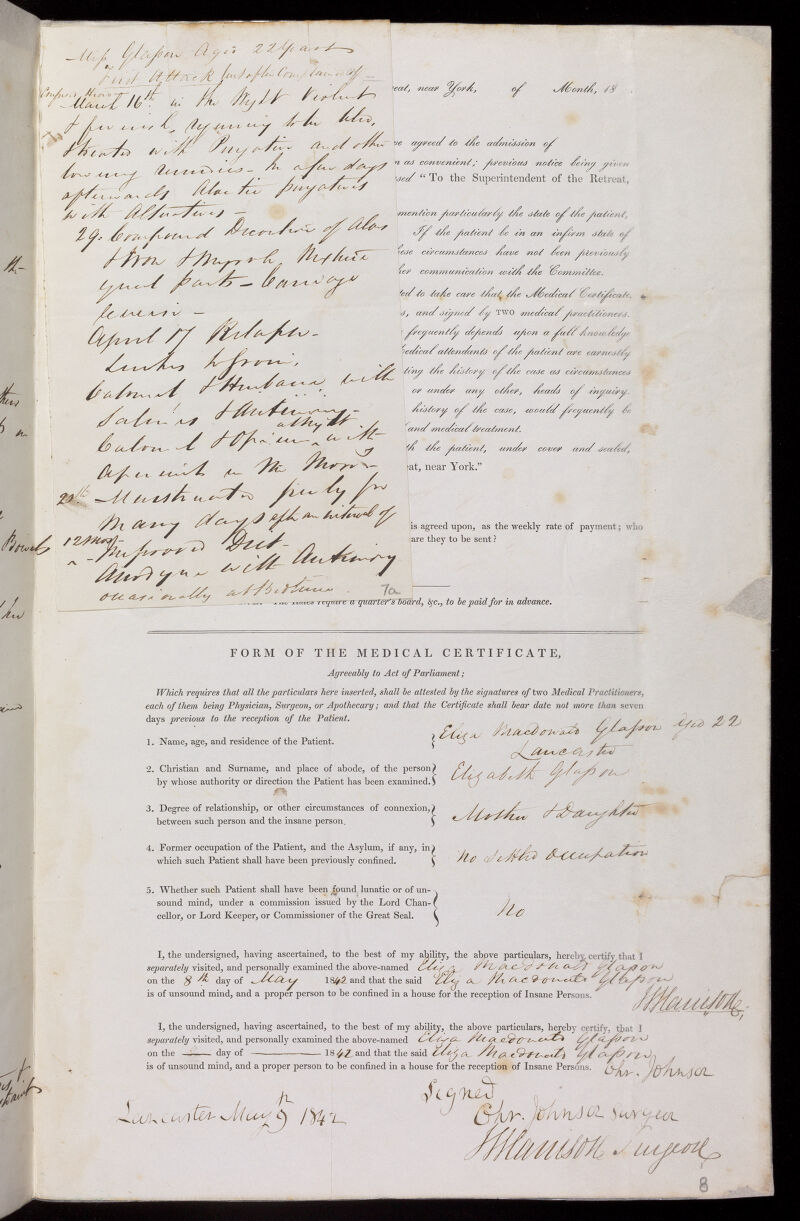 Miss Glasson Aged 22 Years
first Attack
March 16th in the Night Violent
& feverish, requiring to be bled,
& treated with Purgative and other
lowering remedies - In a few days
afterwards Aloetic purgatives
with Alteratives -
29. Compound Decoction of Aloes
& Iron & Myrrh Mixture
equal parts - Carriage
exercise -
April 17 Relapse -
Leeches to groin.
Calomel & with
Salines & Antimony -
Calomel & Opium at night with
Aperients in the Morng
28th - Menstruated freely for
many days after an interval of
12 Mos -
- Improved Diet -
Anodyne with Antimony
occasionally at Bedtime.
7a
eat, near York, of Month, 18 .
agreed to the admission of
as convenient; previous notice being given
"To the Superintendent of the Retreat,
mention particularly the state of the patient,
If the patient be in an infirm state of
circumstances have not been previously
communication with the Committee.
to take care that the Medical Certificate,
, and signed by TWO medical practitioners.
frequently depends upon a full knowledge
medical attendants of the patient are earnestly
the history of the case as circumstances
or under any other, heads of inquiry.
history of the case, would frequently be
and medical treatment.
the patient, under cover and sealed,
eat, near York."
is agreed upon, as the weekly rate of payment; who
are they to be sent?
The Rules require a quarter's board, &c., to be paid for in advance.
FORM OF THE MEDICAL CERTIFICATE,
Agreeably to Act of Parliament;
Which requires that all the particulars here inserted, shall be attested by the signatures of two Medical Practitioners,
each of them being Physician, Surgeon, or Apothecary; and that the Certificate shall bear date not more than seven
days previous to the reception of the Patient.
1. Name, age, and residence of the Patient. Eliza Macdonald Glasson Aged 22
Lancaster
2. Christian and Surname, and place of abode, of the person
by whose authority or direction the Patient has been examined. Elizabeth Glasson
3. Degree of relationship, or other circumstances of connexion,
between such person and the insane person. Mother & Daughter
4. Former occupation of the Patient, and the Asylum, if any, in
which such Patient shall have been previously confined. No settled Occupation
5. Whether such Patient shall have been found lunatic or of un-
sound mind, under a commission issued by the Lord Chan-
cellor, or Lord Keeper, or Commissioner of the Great Seal. No
I, the undersigned, having ascertained, to the best of my ability, the above particulars, hereby certify that I
separately visited, and personally examined the above-named Eliza Macdonald Glasson
on the 8th day of May 1842 and that the said Eliza Macdonald Glasson
is of unsound mind, and a proper person to be confined in a house for the reception of Insane Persons.
Harrison
I, the undersigned, having ascertained, to the best of my ability, the above particulars, hereby certify, that I
separately visited, and personally examined the above-named Eliza Macdonald Glasson
on the — day of — 1842 and that the said Eliza Macdonald Glasson
is of unsound mind, and a proper person to be confined in a house for the reception of Insane Persons. Chr. Johnson
Signed
Lancaster May 9th 1842
Chr. Johnson Surgeon
Harrison Surgeon
8
Bowels